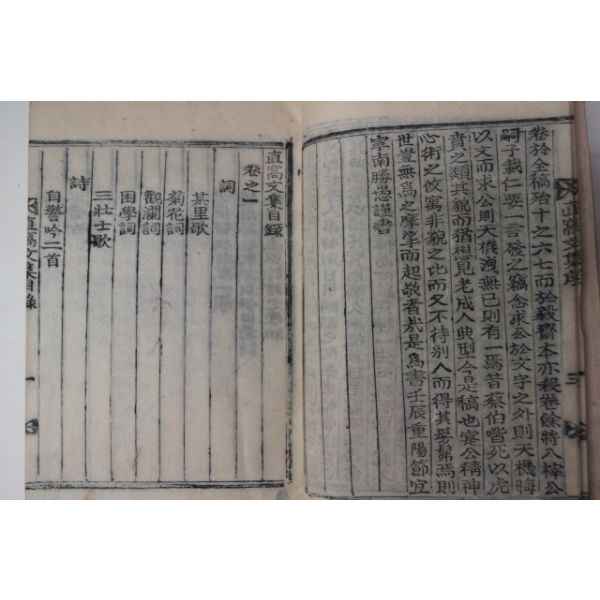 直窩文集序
三
卷於全稿殆十之六七而於毅齋本亦稛卷餘將入梓公
嗣子載仁要一言發之竊念求公於文字之外則天機晦
以文而求公則天機洩無已則有一焉昔蔡伯喈死以虎
賁之類其貌而猶想見老成人典型今是稿也寔公精神
心術之攸寓非貌之比而又不待別人而得其髣髴焉則
世豈無爲之摩挲而起敬者哉是爲書壬辰重陽節宜
寧南勝愚謹書
直窩文集目錄
卷之一
詞
某里歌
菊花詞
觀瀾詞
困學詞
三壯士歌
詩
自警吟二首
直窩文集目錄
一